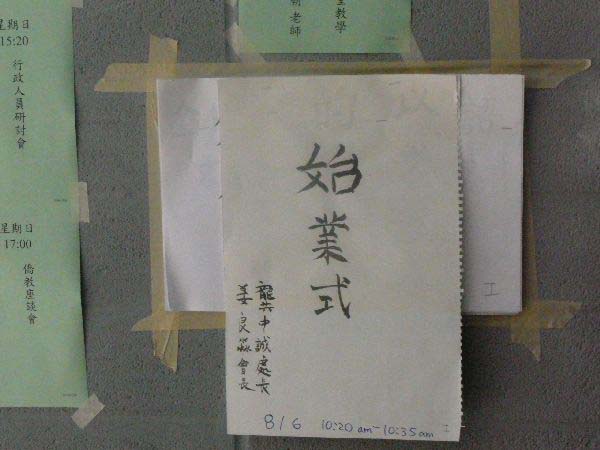 星期日
15:20
行政人員研討會
星期日
17:00
僑教座談會
教學
老師
的
始業式
龔中誠處長
姜良淼會長
8/6 10:20 am - 10:35 am
工
工